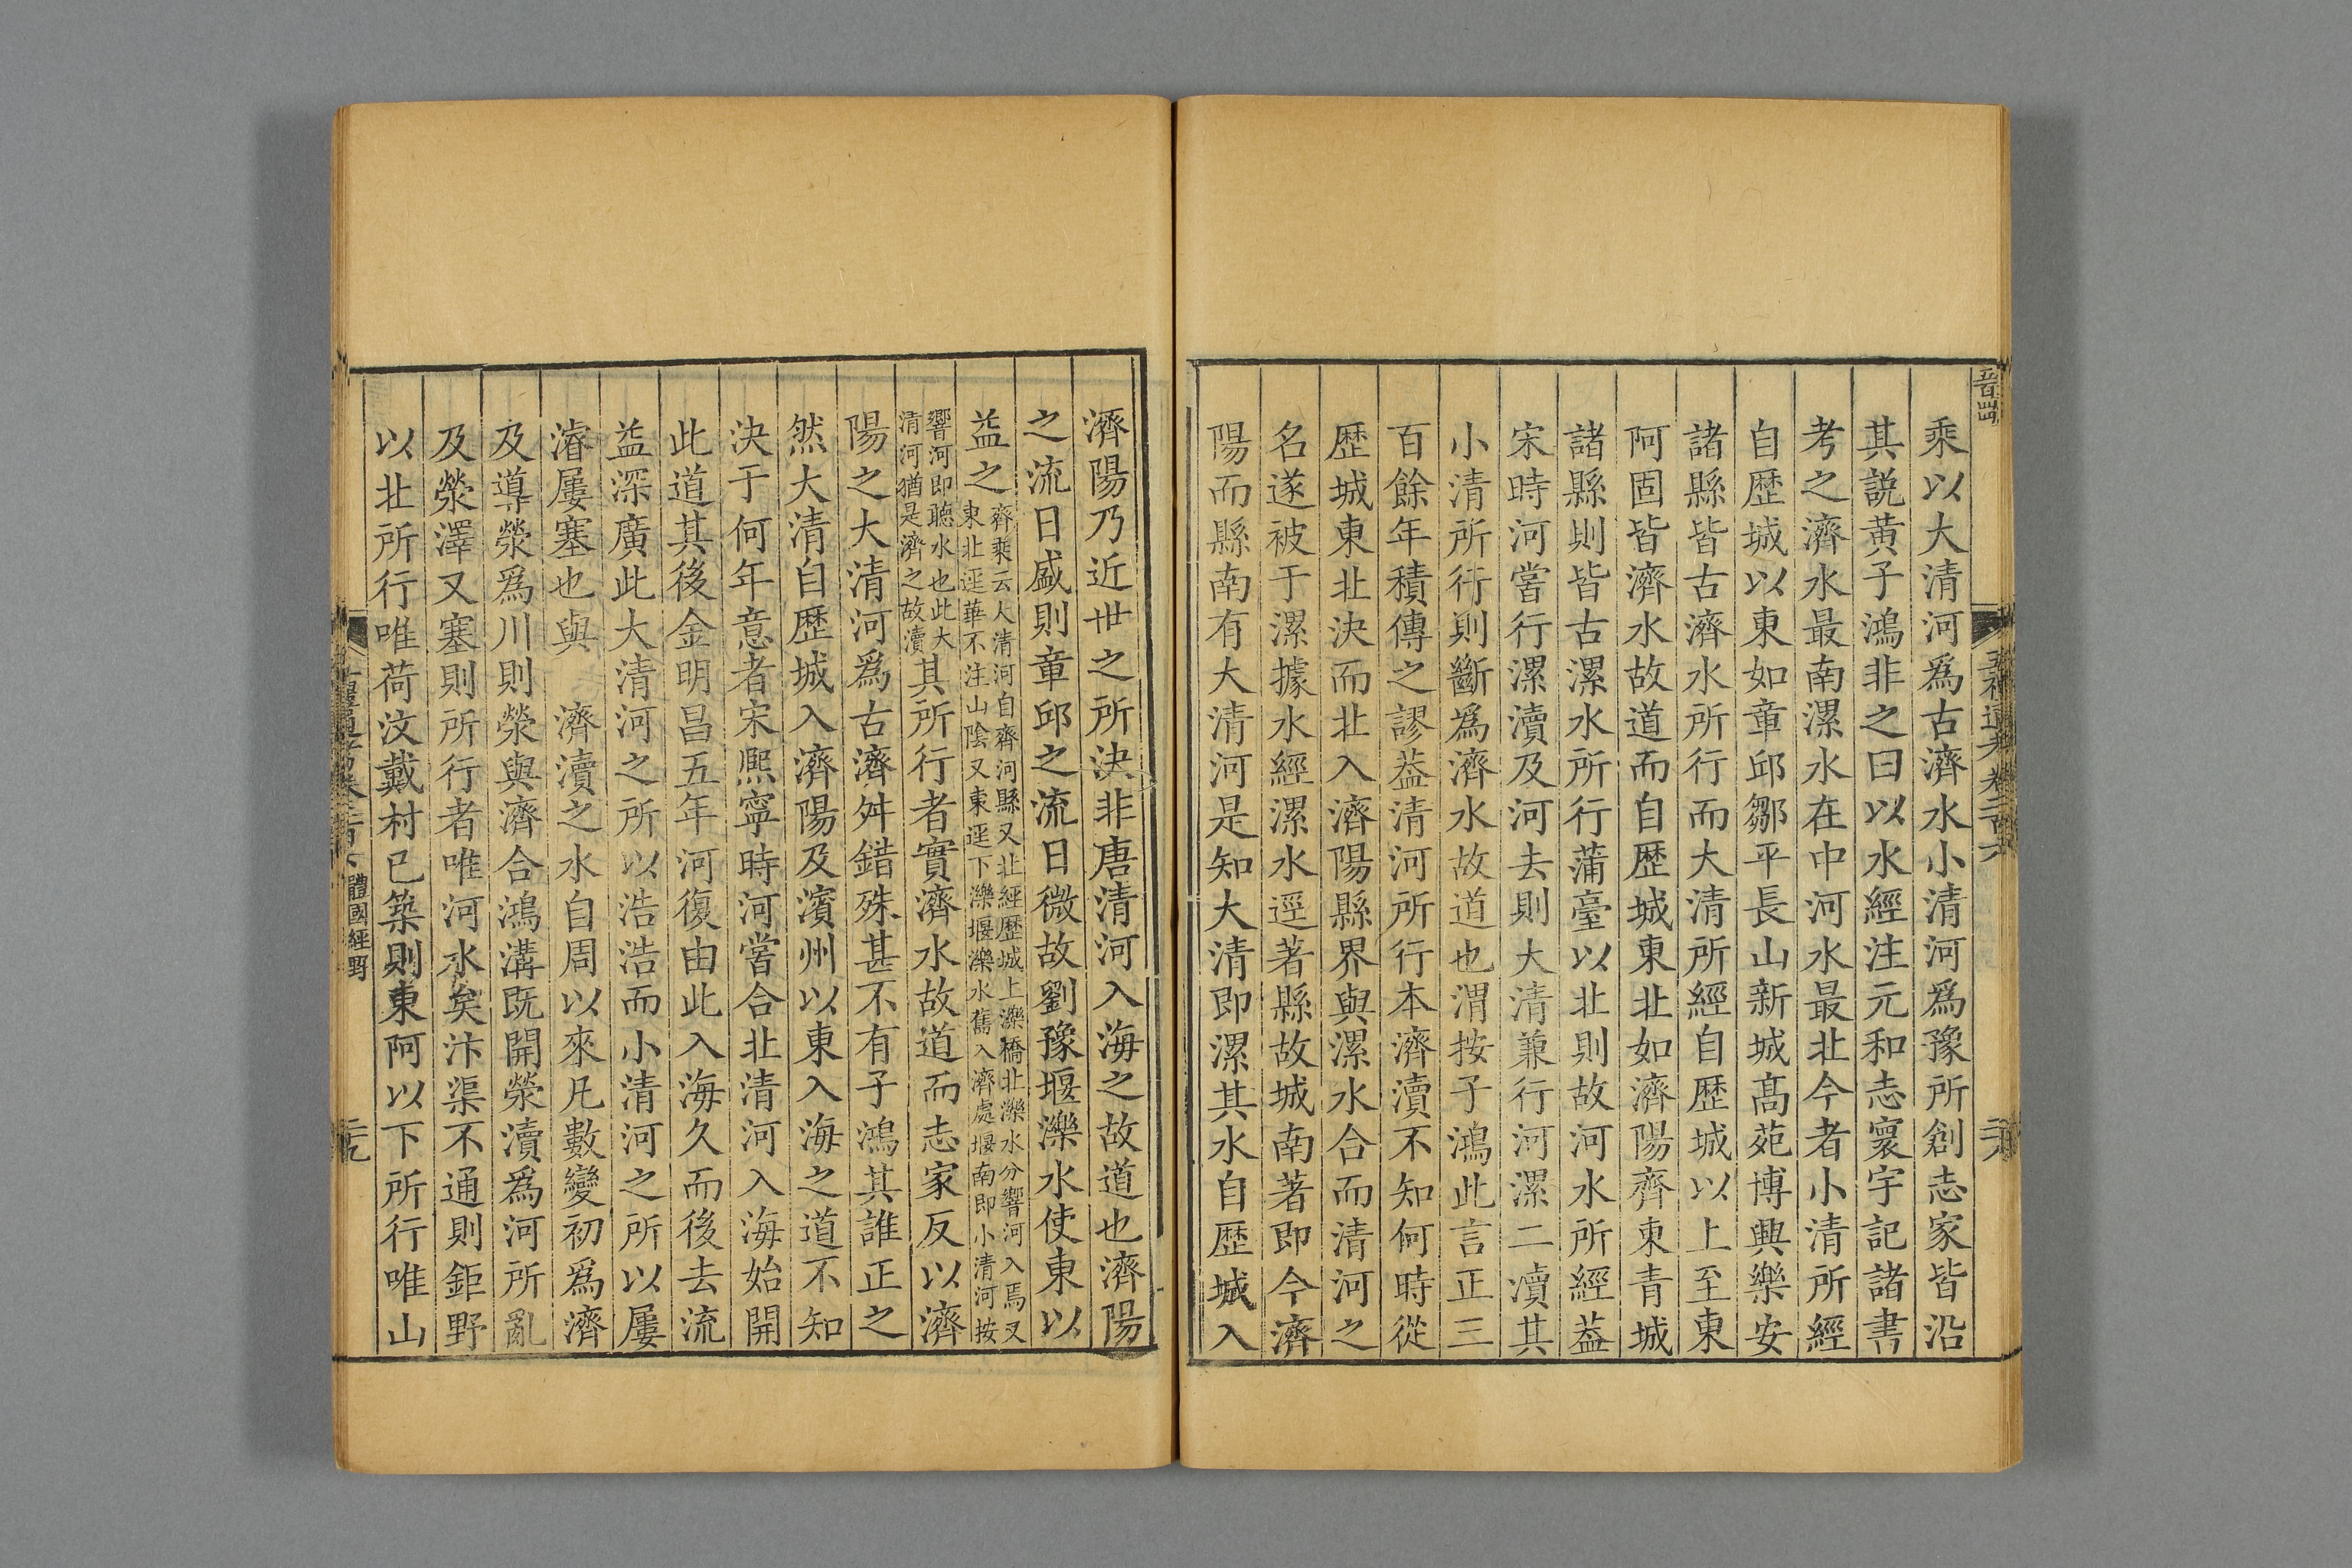 乘以大清河爲古濟水小清河爲豫所創志家皆沿
其説黄子鴻非之曰以水經注元和志寰宇記諸書
考之濟水最南漯水在中河水最北今者小清所經
自歴城以東如章邱鄒平長山新城髙苑博興樂安
諸縣皆古濟水所行而大清所經自歴城以上至東
阿固皆濟水故道而自歴城東北如濟陽齊東青城
諸縣則皆古漯水所行蒲臺以北則故河水所經葢
宋時河嘗行漯瀆及河去則大清兼行河漯二瀆其
小清所行則斷爲濟水故道也渭按子鴻此言正三
百餘年積傳之謬葢清河所行本濟瀆不知何時從
歴城東北決而北入濟陽縣界與漯水合而清河之
名遂被于漯據水經漯水逕著縣故城南著即今濟
陽而縣南有大清河是知大清即漯其水自歴城入
濟陽乃近世之所決非唐清河入海之故道也濟陽
之流日盛則章邱之流日微故劉豫堰濼水使東以
益之
齊乘云大清河自齊河縣又北經歴城上濼橋北濼水分響河入焉又
東北逕華不注山陰又東逕下濼堰濼水舊入濟處堰南即小清河按
響河即聽水也此大
清河猶是濟之故瀆
其所行者實濟水故道而志家反以濟
陽之大清河爲古濟舛錯殊甚不有子鴻其誰正之
然大清自歴城入濟陽及濱州以東入海之道不知
決于何年意者宋熈寧時河嘗合北清河入海始開
此道其後金明昌五年河復由此入海久而後去流
益深廣此大清河之所以浩浩而小清河之所以屢
濬屢塞也與　濟瀆之水自周以來凡數變初爲濟
及導滎爲川則滎與濟合鴻溝既開滎瀆爲河所亂
及滎澤又塞則所行者唯河水矣汴渠不通則鉅野
以北所行唯荷汶戴村已築則東阿以下所行唯山
體國經野